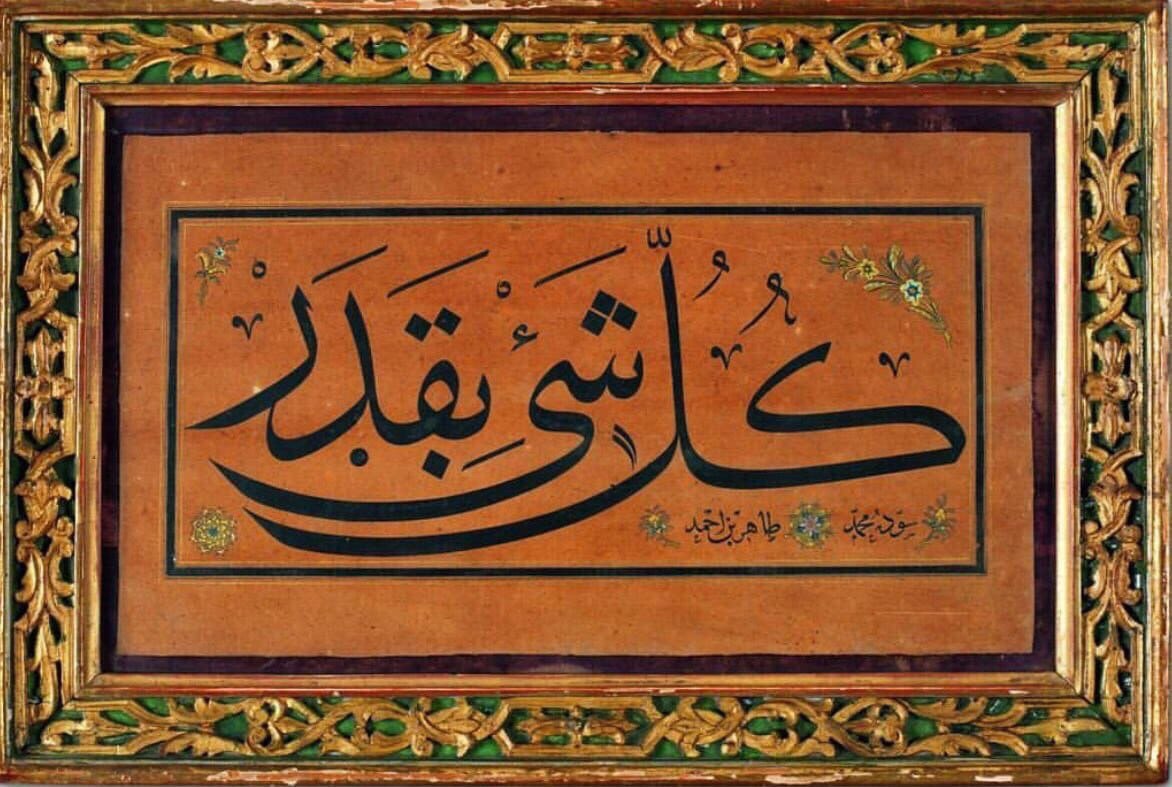 كُلُّ شَیْءٍ بِقَدَرْ
سوده محمد طاهر بن احمد